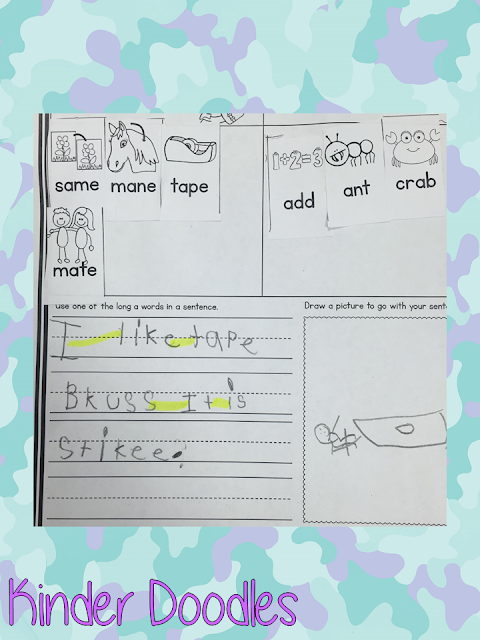 same mane tape
1+2=3
add ant crab
mate
use one of the long a words in a sentence.
Draw a picture to go with your sent
I like tape
Bkuss It is
Stikee.
Kinder Doodles